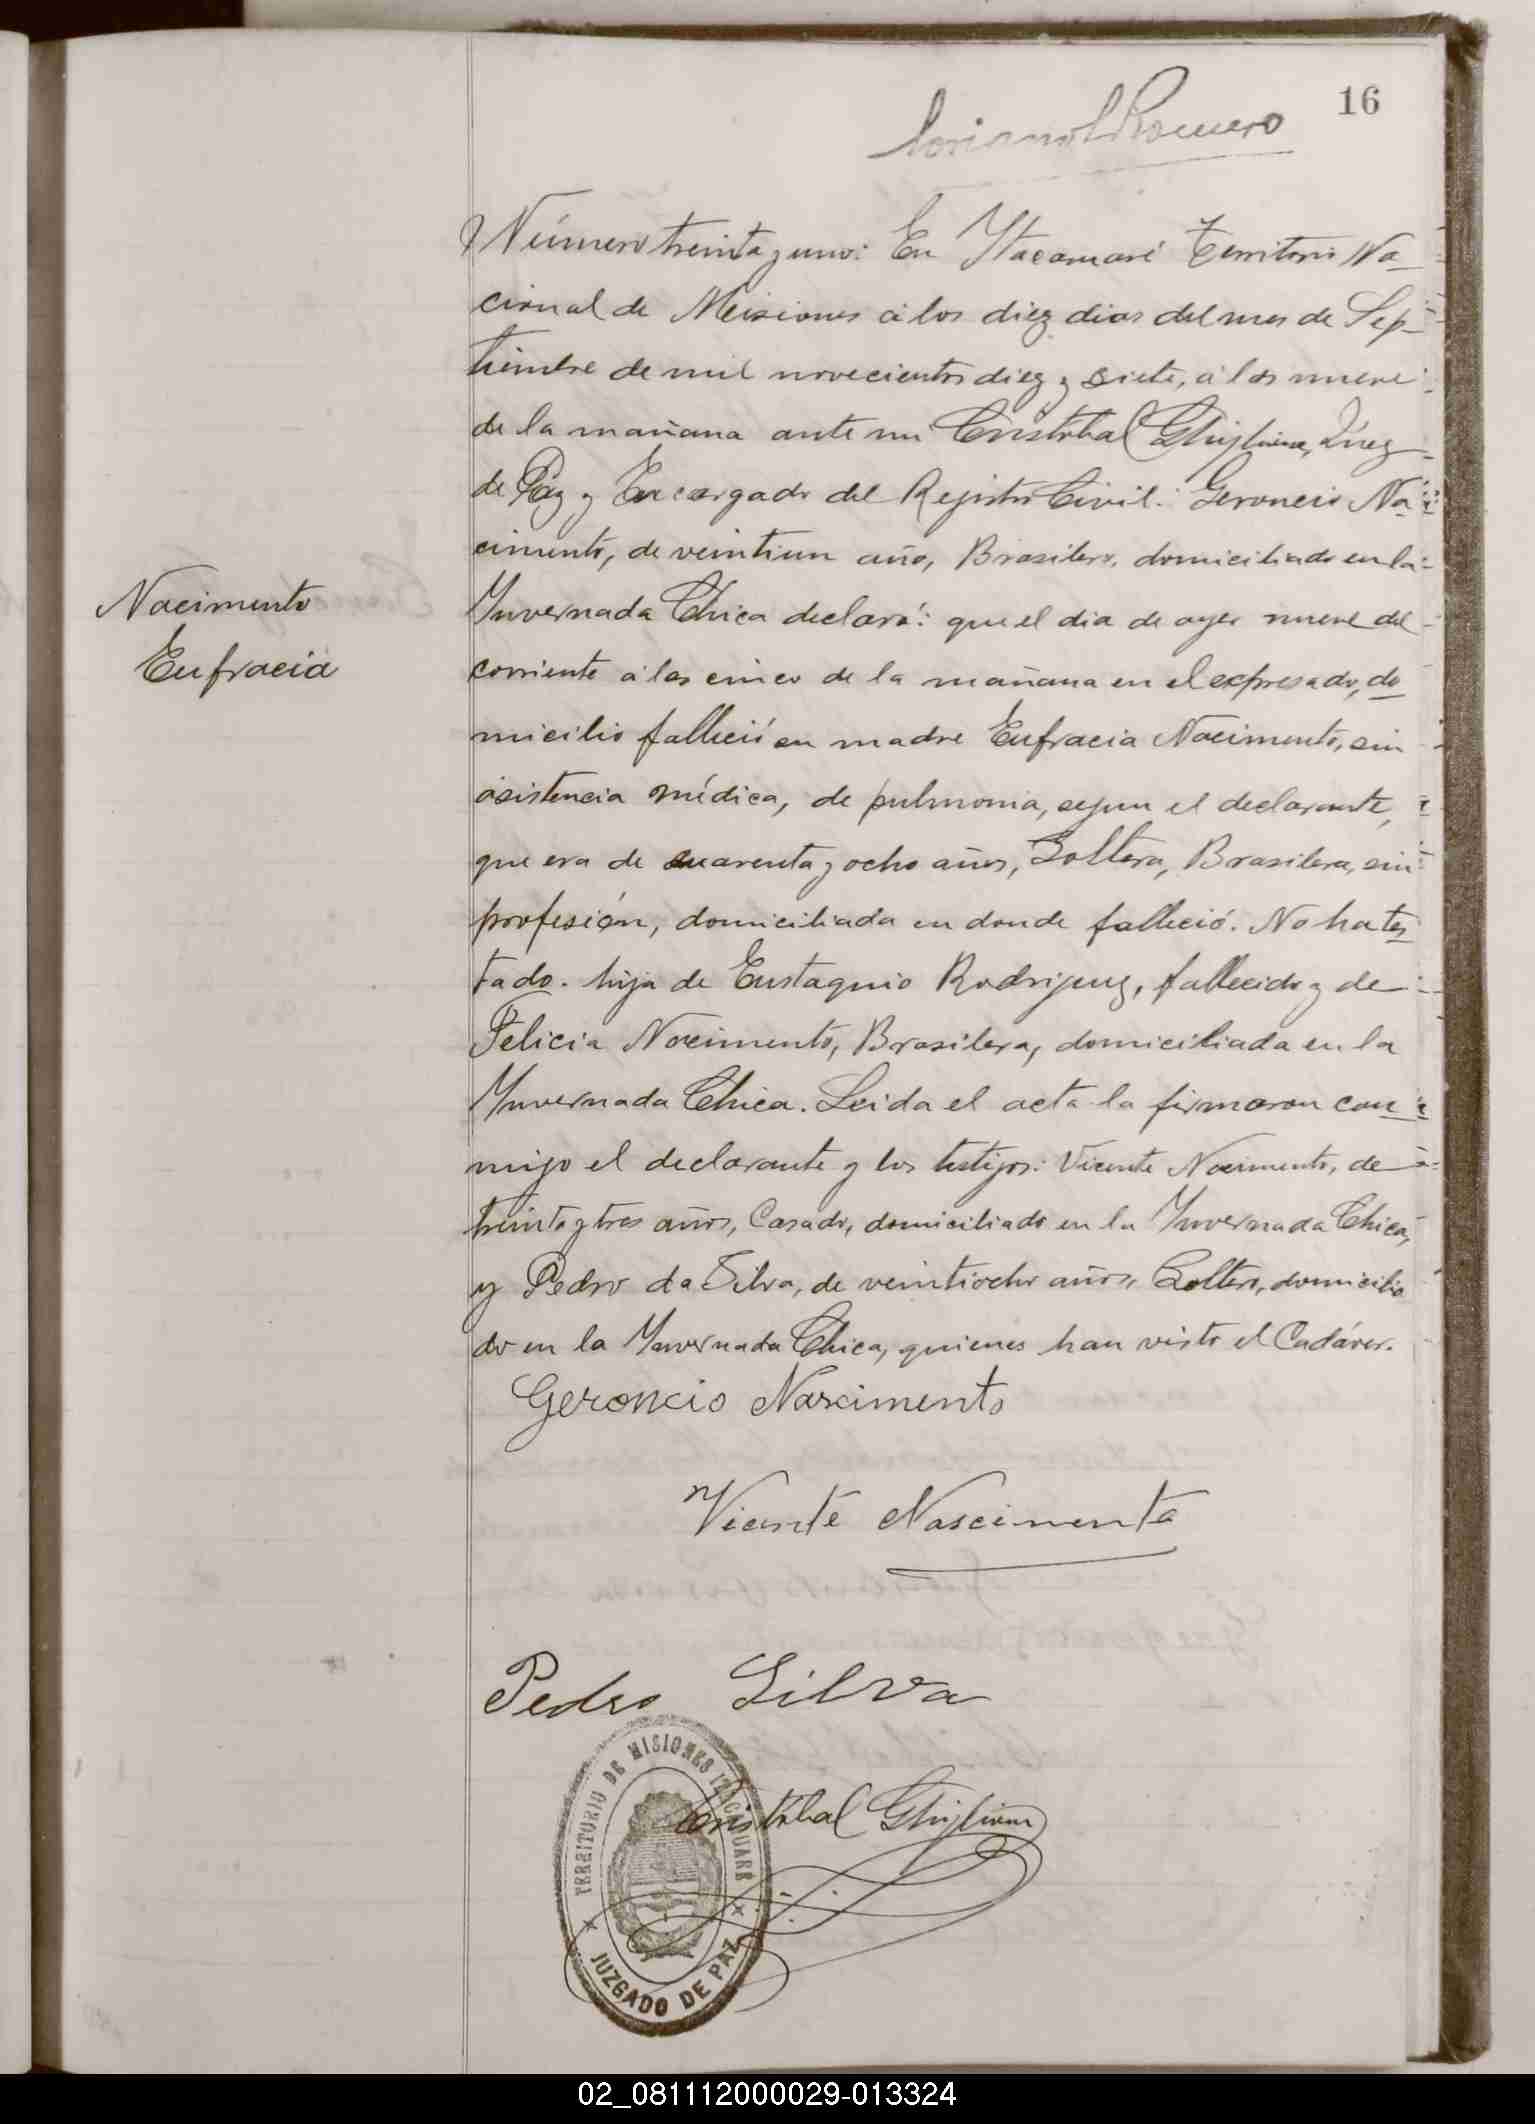 16
Romero
Número treinta y uno: En Ytacaruaré Territorio Na-
cional de Misiones á los diez dias del mes de Sep-
tiembre de mil novecientos diez y siete, á las nueve
de la mañana ante mi Cristobal Ghiglione, Juez
de Paz y Encargado del Registro Civil: Geroncio Na-
cimento, de veintiun año, Brasilero, domiciliado en la
Nacimento
Eufracia
Ynvernada Chica declaró: que el dia de ayer nueve del
corriente á las cinco de la mañana en el expresado, do
micilio falleció su madre Eufracia Nacimento, sin
asistencia médica, de pulmonia, segun el declarante,
que era de cuarenta y ocho años, Soltera, Brasilera, sin
profesión, domiciliada en donde falleció. No ha tes
tado. hija de Eustaquio Rodriguez, fallecido y de
Felicia Nacimento, Brasilera, domiciliada en la
Ynvernada Chica. Leida el acta la firmaron con
migo el declarante y los testigos: Vicente Nacimento, de
treinta y tres años, Casado, domiciliado en la Ynvernada Chica,
y Pedro da Silva, de veintiocho años, Soltero, domicilia
do en la Ynvernada Chica, quienes han visto el Cadáver.
Geroncio Nascimento
Vicente Nascimento
Pedro Silva
TERRITORIO DE MISIONES ITACARUARE
Cristobal Ghiglione
JUZGADO DE PAZ
02_081112000029-013324